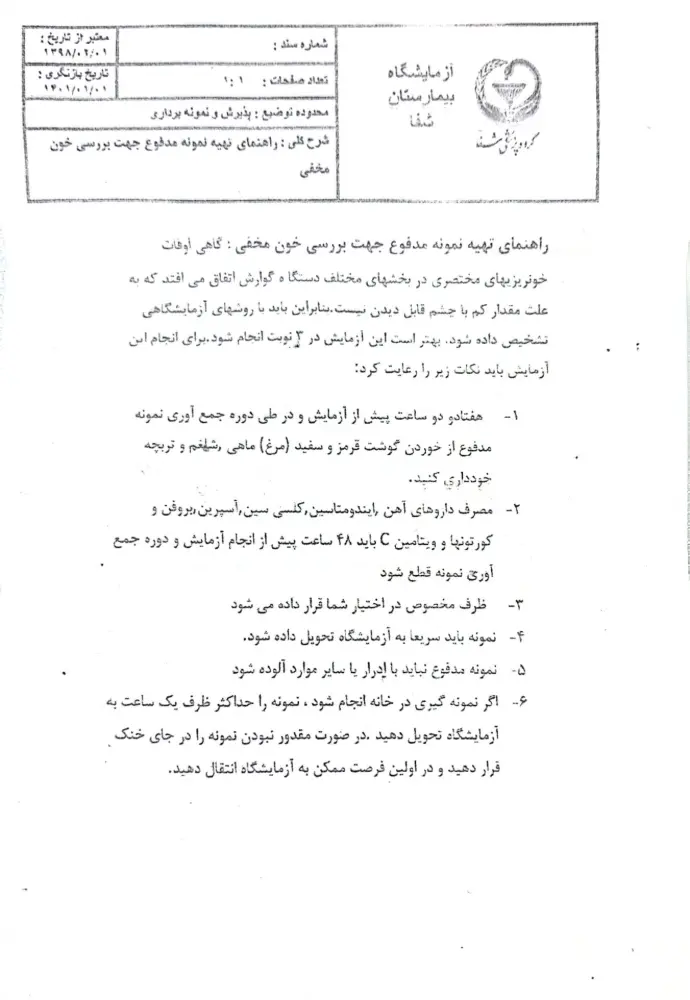 آزمایشگاه
بیمارستان
شفا
گروه پزشکی شفا
شماره سند :
معتبر از تاریخ :
۱۳۹۸/۰۲/۰۱
تعداد صفحات : ۱ : ۱
تاریخ بازنگری :
۱۴۰۱/۰۱/۰۱
محدوده توضیع : پذیرش و نمونه برداری
شرح کلی : راهنمای تهیه نمونه مدفوع جهت بررسی خون
مخفی
راهنمای تهیه نمونه مدفوع جهت بررسی خون مخفی : گاهی اوقات
خونریزیهای مختصری در بخشهای مختلف دستگا ه گوارش اتفاق می افتد که به
علت مقدار کم با چشم قابل دیدن نیست.بنابراین باید با روشهای آزمایشگاهی
تشخیص داده شود. بهتر است این آزمایش در ۳ نوبت انجام شود.برای انجام این
آزمایش باید نکات زیر را رعایت کرد:
۱- هفتادو دو ساعت پیش از آزمایش و در طی دوره جمع آوری نمونه
مدفوع از خوردن گوشت قرمز و سفید (مرغ) ماهی ,شلغم و تربچه
خودداري کنید.
۲- مصرف داروهای آهن ,ایندومتاسین,کلسی سین,آسپرین,بروفن و
کورتونها و ویتامین C باید ۴۸ ساعت پیش از انجام آزمایش و دوره جمع
آوری نمونه قطع شود
۳- ظرف مخصوص در اختیار شما قرار داده می شود
۴- نمونه باید سریعا به آزمایشگاه تحویل داده شود.
۵- نمونه مدفوع نباید با إدرار یا سایر موارد آلوده شود
۶- اگر نمونه گیری در خانه انجام شود ، نمونه را حداکثر ظرف یک ساعت به
آزمایشگاه تحویل دهید .در صورت مقدور نبودن نمونه را در جای خنک
قرار دهید و در اولین فرصت ممکن به آزمایشگاه انتقال دهید.